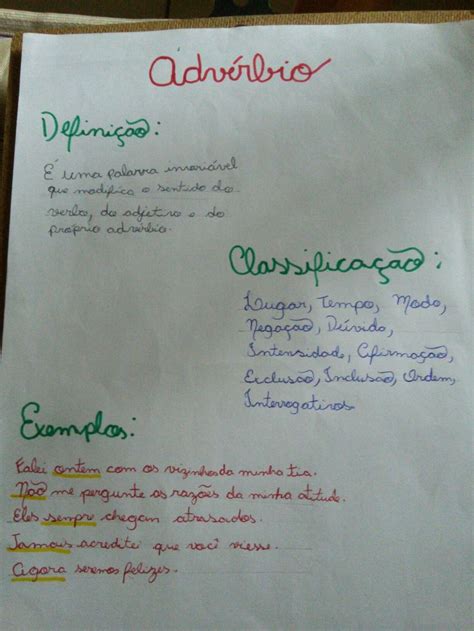 Advérbio
Definição:
É uma palavra invariável
que modifica o sentido do
verbo, do adjetivo e do
próprio advérbio.
Classificação:
Lugar, Tempo, Modo,
Negação, Dúvida,
Intensidade, Afirmação,
Exclusão, Inclusão, Ordem,
Interrogativos
Exemplos:
Falei ontem com os vizinhos da minha tia.
Não me pergunte as razões da minha atitude.
Eles sempr chegam atrasados.
Jamais acreditei que você viesse.
Agora seremos felizes.